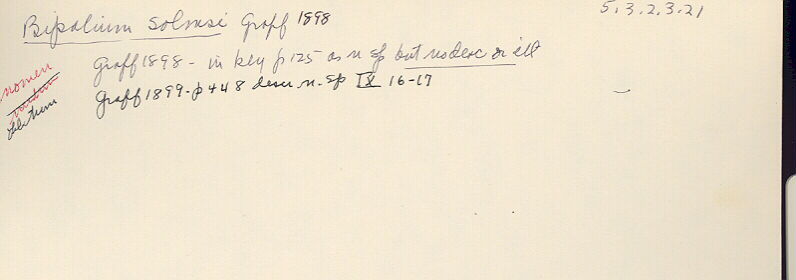 Bipalium Solmsi Graff 1898
5.3.2.3.21
Graff 1898 - in key p 125 as n sp but no desc or ill
Graff 1899 - p 448 descr. n. sp IX 16-17
nomen
nudum